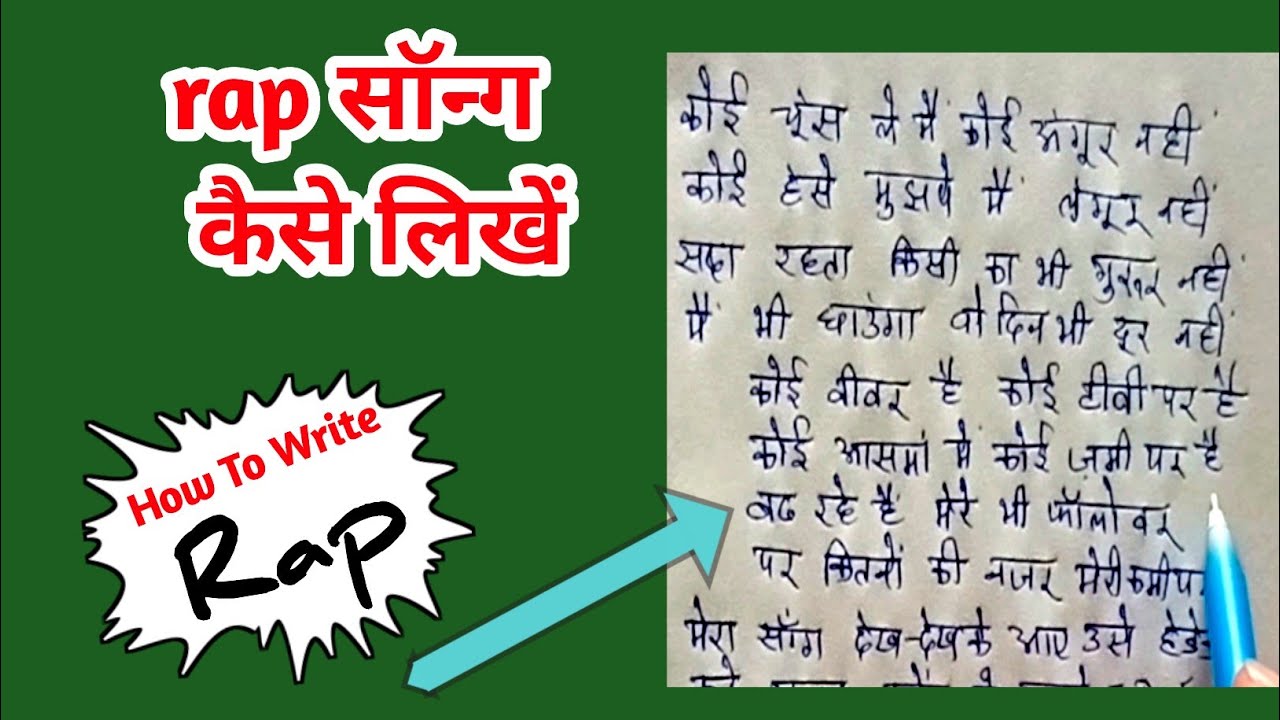 rap सॉन्ग
कैसे लिखें
How To Write
Rap
कोई चूस ले मैं कोई अंगूर नहीं
कोई हंसे मुझपे मैं लंगूर नहीं
सदा रहता किसी का भी गुरूर नहीं
मैं भी छाउंगा वो दिन भी दूर नहीं
कोई वीवर है कोई टीवी पर है
कोई आसमां में कोई ज़मी पर है
बढ रहे हैं मेरे भी फॉलोवर
पर कितनों की नजर मेरी कमी
मेरा सॉंग देख-देखके आए उसे